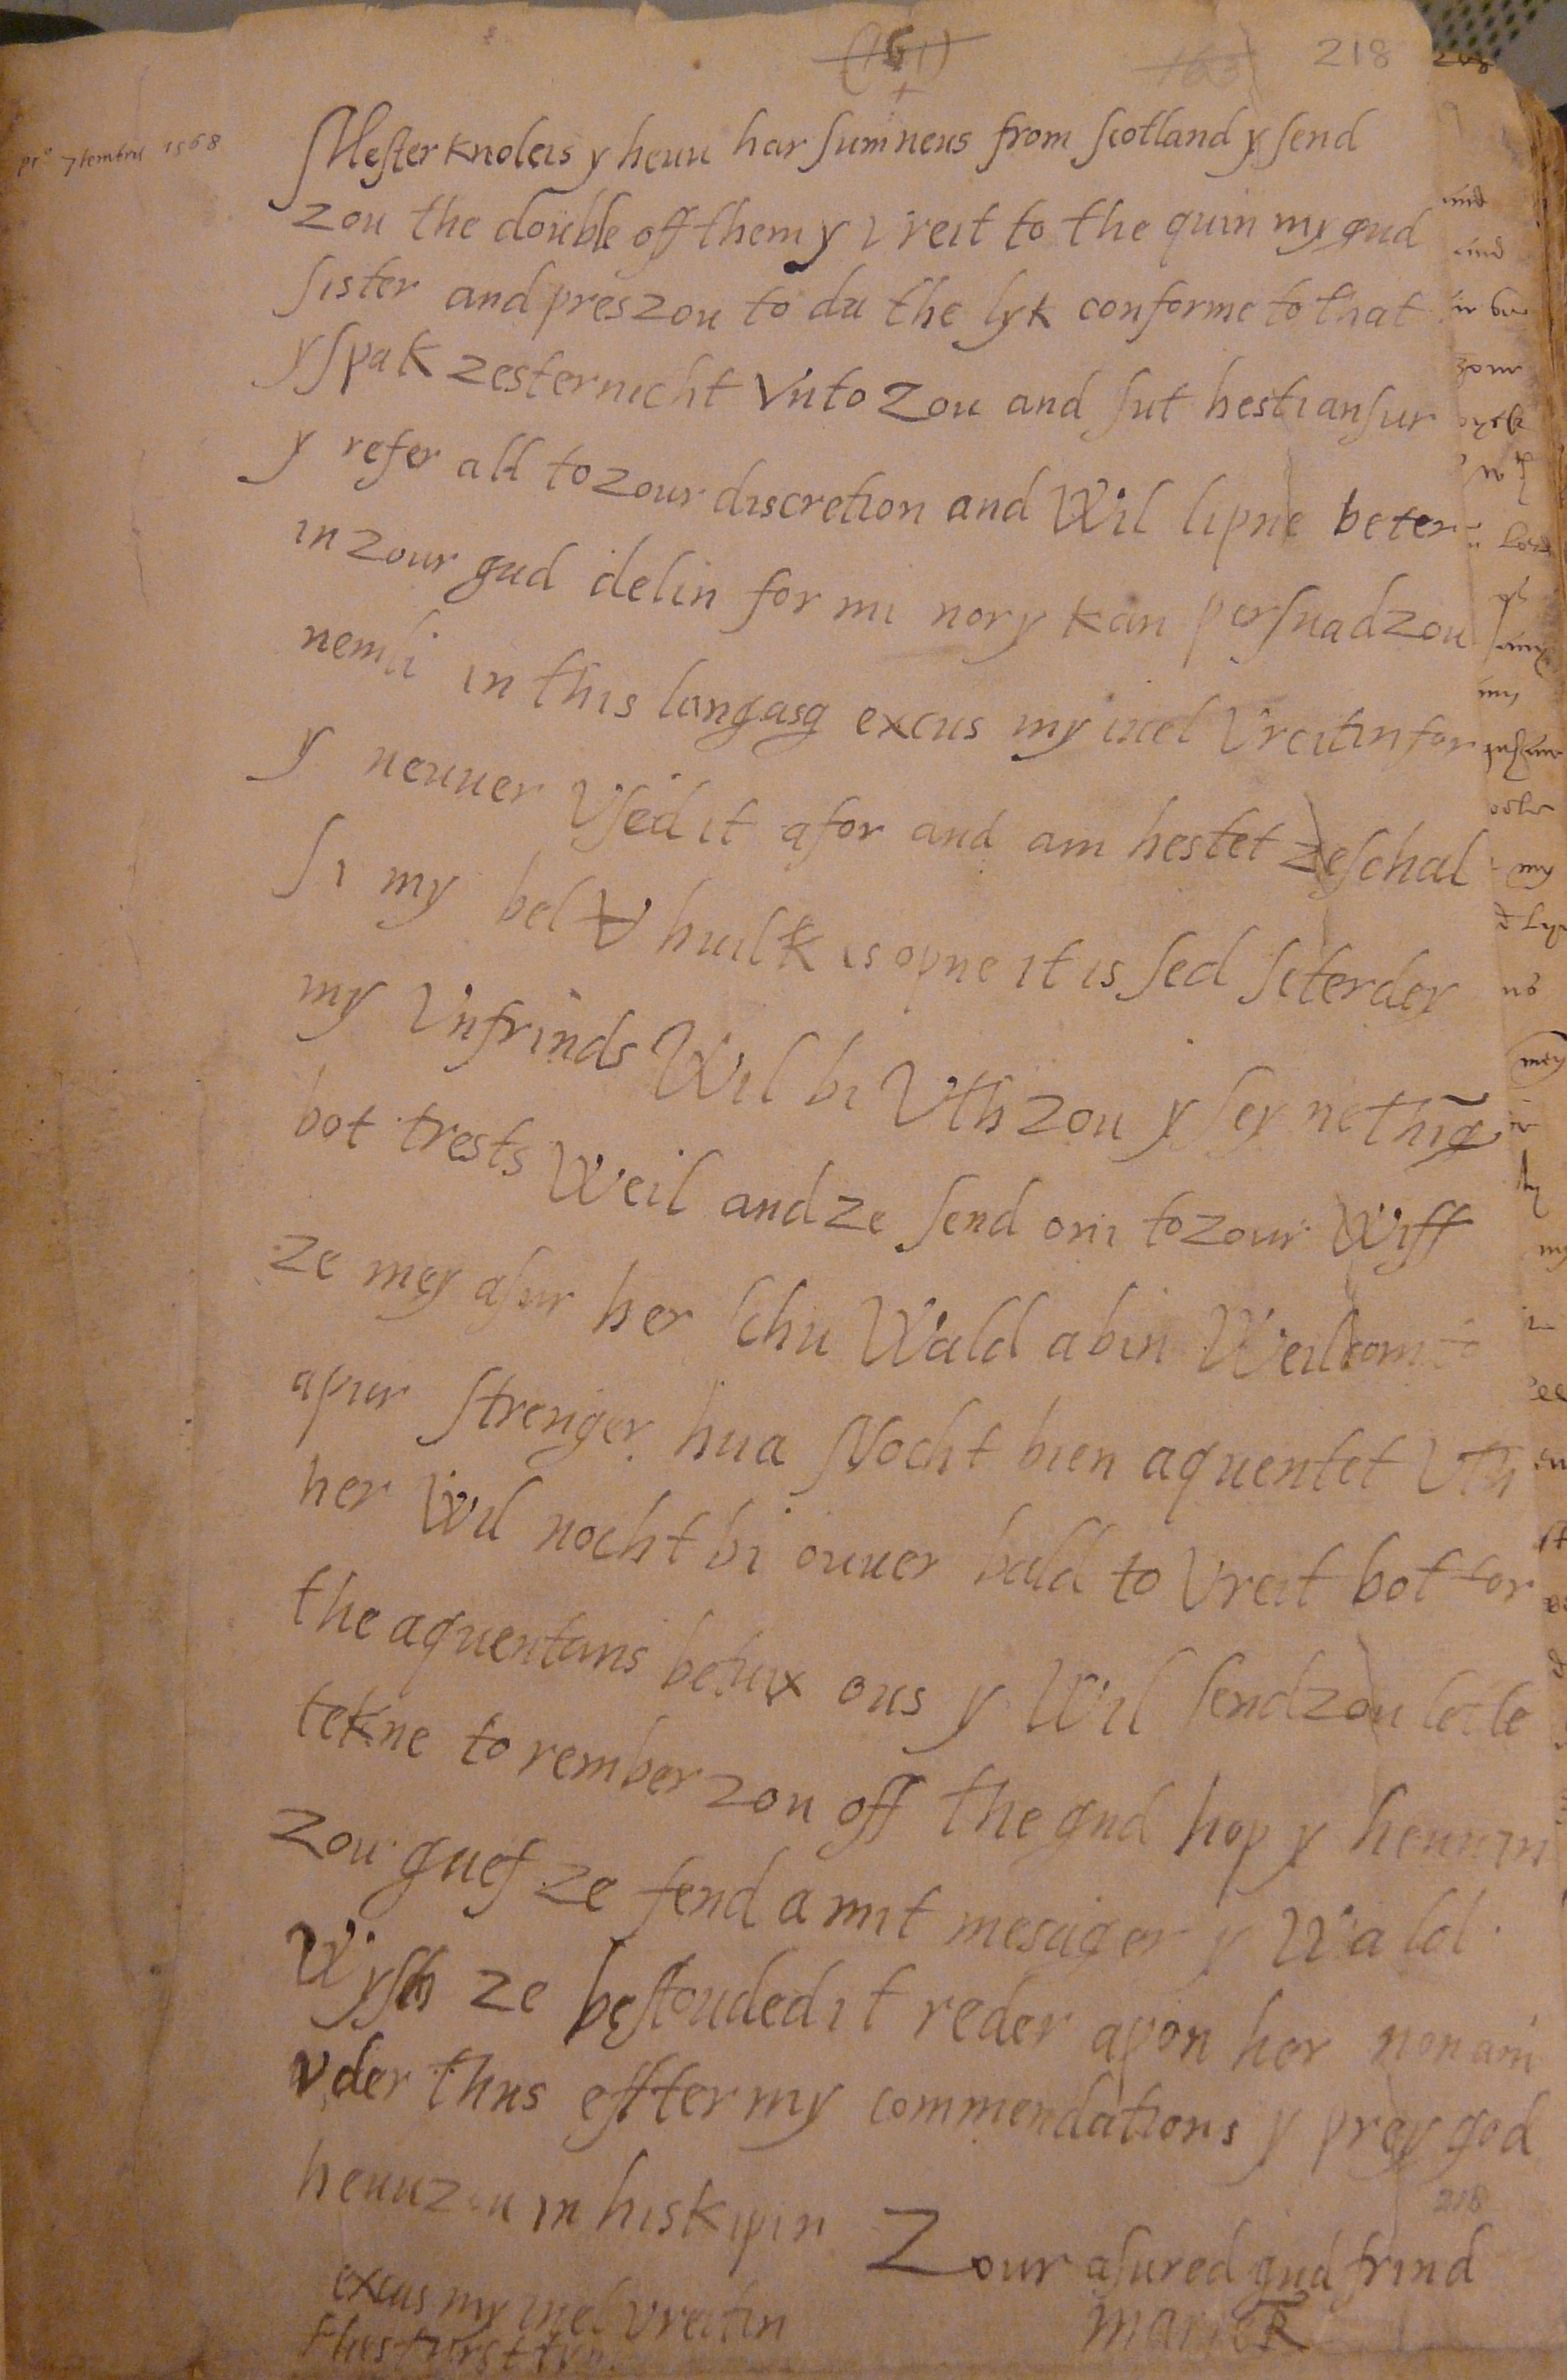 (161)
163
218
218
pr.º 7tembris 1568
Mester knoleis y heuu har sum neus from scotland y send
zou the double off them y vreit to the quin my gud
sister and pres zou to du the lyk conforme to that
y spak zesternicht vnto zou and sut hesti ansur
y refer all to zour discretion and wil lipne beter
in zour gud delin for mi nor y kan persuad zou
nemli in this langasg excus my iuel vreitin for
y neuuer vsed it afor and am hestet ze schal
si my bel vhuilk is opne it is sed seterdey
my vnfrinds wil bi vth zou y sey nething
bot trests weil and ze send oni to zour wiff
ze mey asur her schu wald a bin weilcom to
a pur strenger hua nocht bien aquentet vth
her wil nocht bi ouuer bald to vreit bot for
the aquentans betuix ous y wil send zou letle
tekne to rember zou off the gud hop y heuu in
zou guef ze fend a mit mesager y wald
wysh ze bestouded it reder apon her non ani
vder thus effter my commendations y prey god
heuu zou in his kipin
Zour asured gud frind
Marie R
excus my iuel vreitin
thes furst tym
218